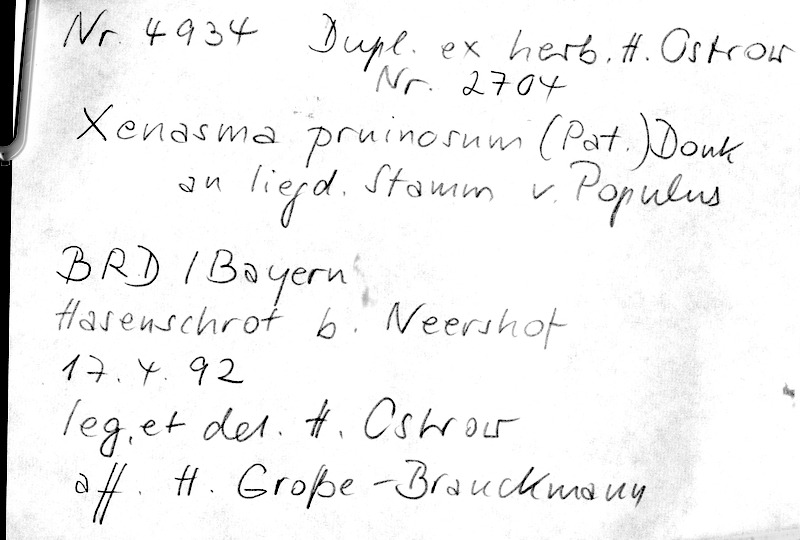 Nr. 4934 Dupl. ex herb. H. Ostrow
Nr. 2704
Xenasma pruinosum (Pat.) Donk
an liegd. Stamm v. Populus
BRD / Bayern
Hasenschrot b. Neershof
17. 4. 92
leg. et det. H. Ostrow
aff. H. Große-Brauckmann